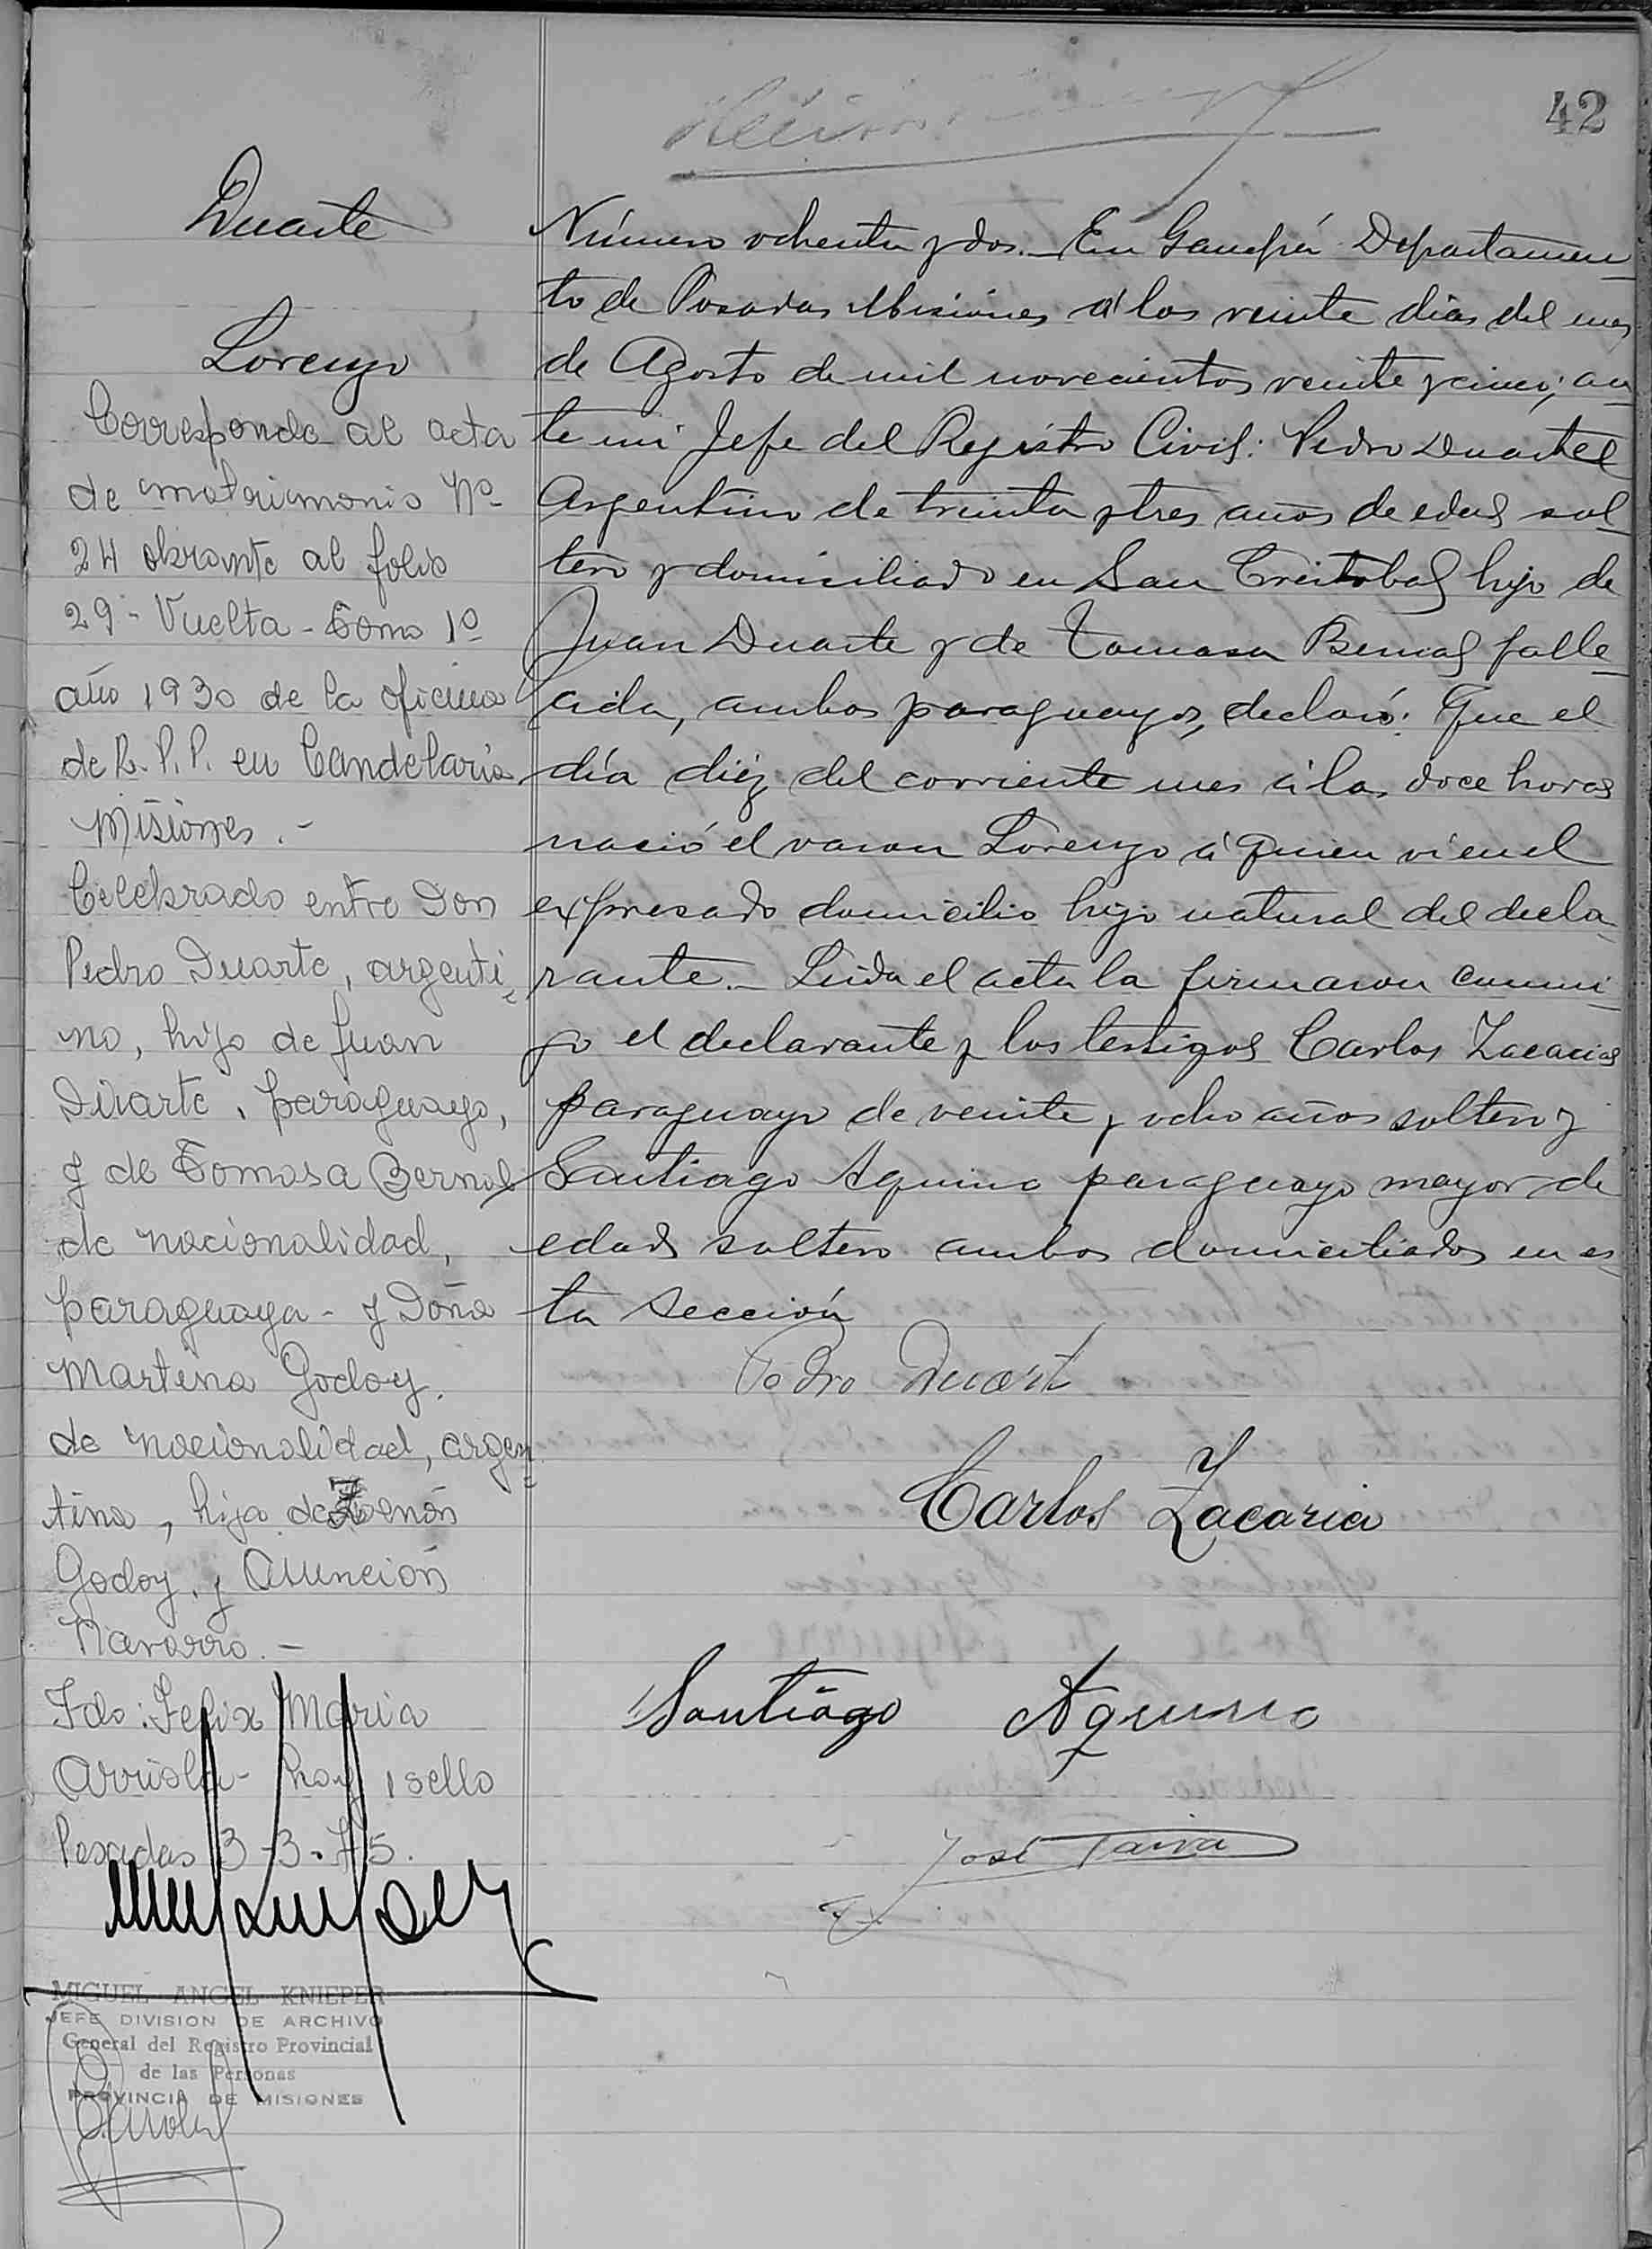 42
Duarte
Lorenzo
Corresponde al acta
de matrimonio Nº
24 obrante al folio
29 - Vuelta - Tomo 1º
año 1930 de la oficina
de R. P. P. en Candelaria
Misiones. -
Celebrado entre Don
Pedro Duarte, argenti-
no, hijo de Juan
Duarte, paraguayo,
y de Tomasa Bernal
de nacionalidad,
paraguaya - y Doña
Martina Godoy.
de nacionalidad, argen-
tina, hija de Zenón
Godoy, y Asunción
Navarro. -
Fdo: Felix Maria
Arriola - hay 1 sello
Posadas 3-3-75.
MIGUEL ANGEL KNIEPER
JEFE DIVISION DE ARCHIVO
General del Registro Provincial
de las Personas
PROVINCIA DE MISIONES
Número ochenta y dos. - En Garupá Departamen-
to de Posadas Misiones á los veinte dias del mes
de Agosto de mil novecientos veinte y cinco; an-
te mi Jefe del Registro Civil: Pedro Duarte
Argentino de treinta y tres años de edad sol-
tero y domiciliado en San Cristobal hijo de
Juan Duarte y de Tomasa Bernal falle-
cida, ambos paraguayos, declaró: Que el
día diéz del corriente mes á las doce horas
nació el varon Lorenzo á quien ví en el
expresado domicilio hijo natural del decla-
rante. - Leida el acta la firmaron conmi-
go el declarante y los testigos Carlos Zacarias
paraguayo de veinte y ocho años soltero y
Santiago Aquino paraguayo mayor de
edad soltero ambos domiciliados en es-
ta Sección
Pedro Duarte
Carlos Zacaria
Santiago Aquino
José Paiva